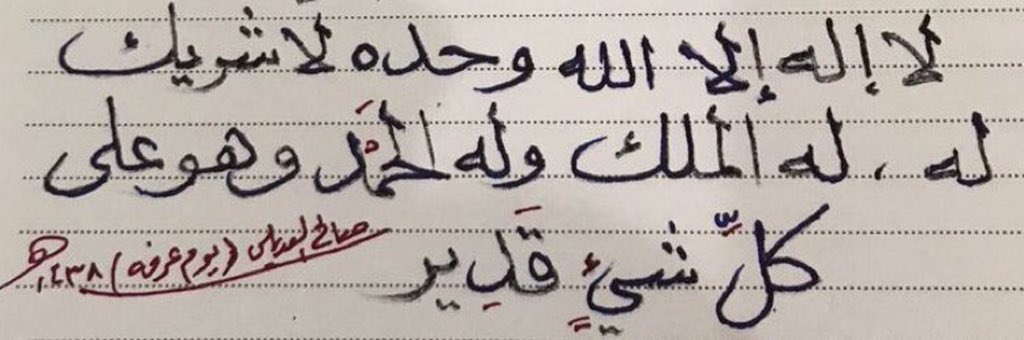 لا إله إلا الله وحده لا شريك
له ، له الملك وله الحَمْد وهو على
كلِّ شيءٍ قَدِير
صالح (يوم عرفه) ١٤٣٨هـ